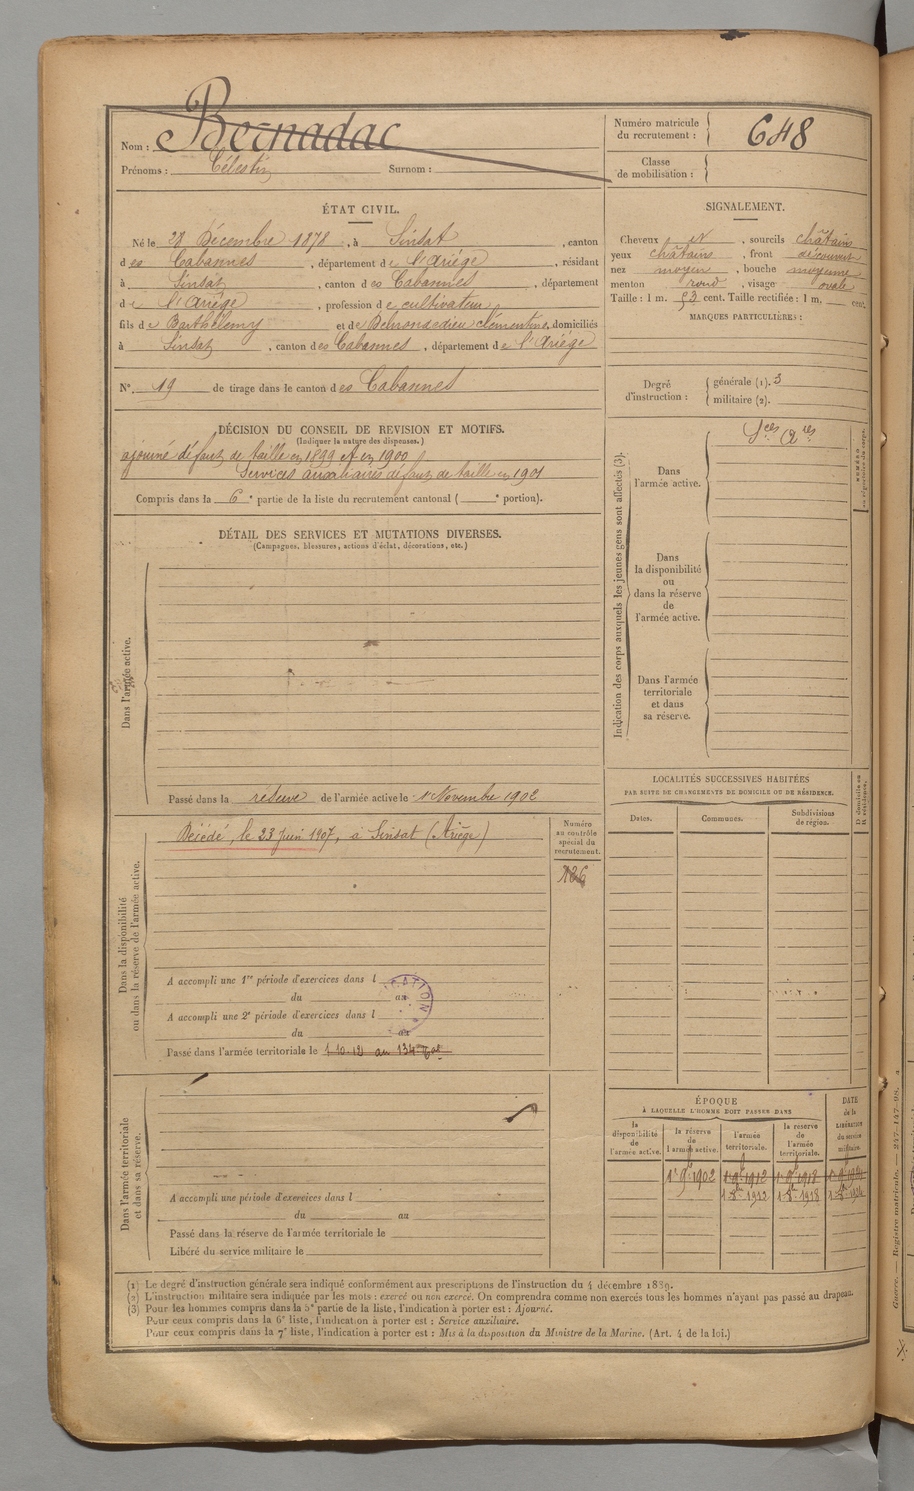 Nom : Bernadac
Prénoms : Célestin Surnom :
Numéro matricule
du recrutement : 648
Classe
de mobilisation :
ÉTAT CIVIL.
Né le 28 Décembre 1878, à Sinsat, canton
des Cabannes, département de l'Ariége, résidant
à Sinsat, canton des Cabannes, département
de l'Ariége, profession de cultivateur
fils de Barthélemy et de Clémentine, domiciliés
à Sinsat, canton des Cabannes, département de l'Ariége
N° 19 de tirage dans le canton des Cabannes
SIGNALEMENT.
Cheveux et, sourcils châtains
yeux châtains, front découvert
nez moyen, bouche moyenne
menton rond, visage ovale
Taille : 1 m. 53 cent. Taille rectifiée : 1 m. cent.
MARQUES PARTICULIÈRES :
Degré
d'instruction :
générale (1). 3
militaire (2).
DÉCISION DU CONSEIL DE REVISION ET MOTIFS.
(Indiquer la nature des dispenses.)
ajourné défaut de taille en 1899 et en 1900
Services auxiliaires défaut de taille en 1901
Compris dans la 6e partie de la liste du recrutement cantonal ( e portion).
DÉTAIL DES SERVICES ET MUTATIONS DIVERSES.
(Campagnes, blessures, actions d'éclat, décorations, etc.)
Dans l'armée active.
Passé dans la réserve de l'armée active le 1er Novembre 1902
Indication des corps auxquels les jeunes gens sont affectés (3).
Dans
l'armée active.
Sces Ares
Dans
la disponibilité
ou
dans la réserve
de
l'armée active.
Dans l'armée
territoriale
et dans
sa réserve.
LOCALITÉS SUCCESSIVES HABITÉES
PAR SUITE DE CHANGEMENTS DE DOMICILE OU DE RÉSIDENCE.
Dates. Communes. Subdivisions
de région.
D. domicile ou
R. résidence.
Dans la disponibilité
ou dans la réserve de l'armée active.
Décédé, le 23 juin 1907, à Sinsat (Ariège)
Numéro
au contrôle
spécial du
recrutement.
126
A accompli une 1re période d'exercices dans l
du au
A accompli une 2e période d'exercices dans l
du au
Passé dans l'armée territoriale le 1-10-12 au 134e
Dans l'armée territoriale
et dans sa réserve.
A accompli une période d'exercices dans l
du au
Passé dans la réserve de l'armée territoriale le
Libéré du service militaire le
ÉPOQUE
À LAQUELLE L'HOMME DOIT PASSER DANS
la
disponibilité
de
l'armée active.
la réserve
de
l'armée active.
l'armée
territoriale.
la réserve
de
l'armée
territoriale.
DATE
de la
LIBÉRATION
du service
militaire.
1er 9bre 1902 1er 9bre 1912 1er 9bre 1918
(1) Le degré d'instruction générale sera indiqué conformément aux prescriptions de l'instruction du 4 décembre 1889.
(2) L'instruction militaire sera indiquée par les mots : exercé ou non exercé. On comprendra comme non exercés tous les hommes n'ayant pas passé au drapeau.
(3) Pour les hommes compris dans la 5e partie de la liste, l'indication à porter est : Ajourné.
Pour ceux compris dans la 6e liste, l'indication à porter est : Service auxiliaire.
Pour ceux compris dans la 7e liste, l'indication à porter est : Mis à la disposition du Ministre de la Marine. (Art. 4 de la loi.)
Guerre. — Registre matricule. — 247-147-98.